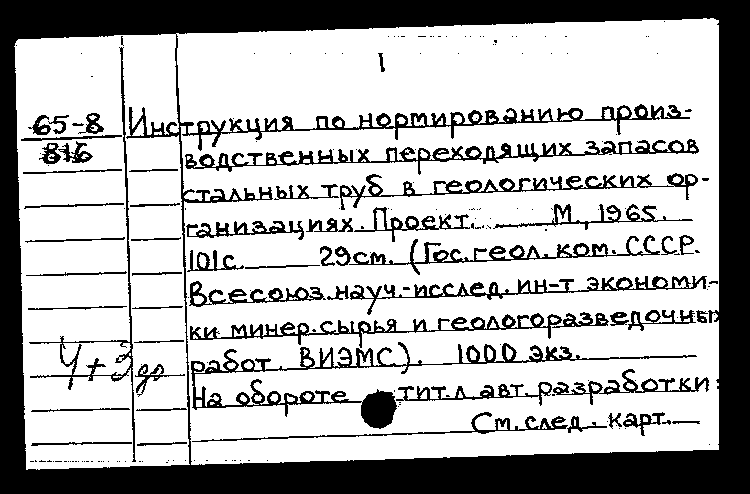 I
65-8 Инструкция по нормированию произ-
816 водственных переходящих запасов
стальных труб в геологических ор-
ганизациях. Проект. М., 1965.
101с. 29см. (Гос. геол. ком. СССР.
Всесоюз. науч.-исслед. ин-т экономи-
ки минер. сырья и геологоразведочных
работ. ВИЭМС). 1000 экз.
На обороте тит. л авт. разработки:
См. след. карт.